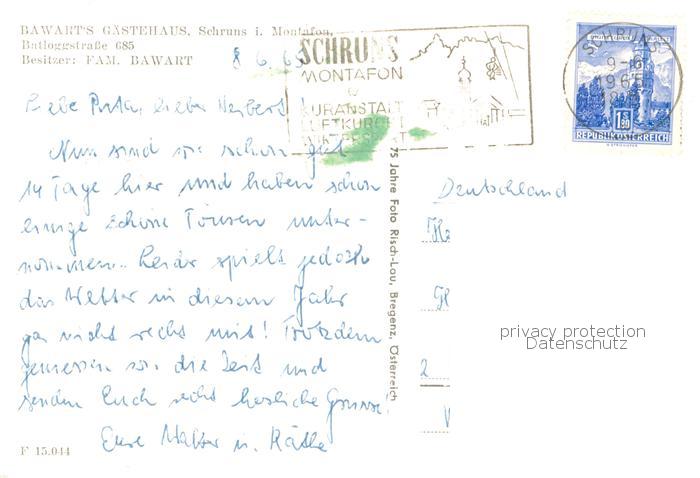 BAWART'S GÄSTEHAUS, Schruns i. Montafon,
Batloggstraße 685
Besitzer: FAM. BAWART
8. 6. 65
SCHRUNS
MONTAFON
KURANSTALT
LUFTKURORT
SCHRUNS
9-6
1965
REPUBLIK ÖSTERREICH
Liebe lieber Herbert!
Nun sind wir schon gut
14 Tage hier und haben schon
einige schöne Touren unter-
nommen. Leider spielt jedoch
das Wetter in diesem Jahr
gar nicht recht mit! Trotzdem
geniessen wir die Zeit und
senden Euch recht herzliche Grüsse!
Eure Walter u. Käthe
F 15.044
75 Jahre Foto Risch-Lau, Bregenz, Österreich
Deutschland
2
privacy protection
Datenschutz